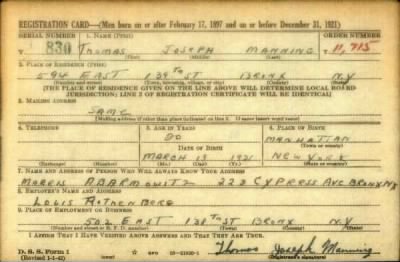 REGISTRATION CARD—(Men born on or after February 17, 1897 and on or before December 31, 1921)
SERIAL NUMBER 1. NAME (Print) ORDER NUMBER
830 THOMAS JOSEPH MANNING 11,715
(First) (Middle) (Last)
2. PLACE OF RESIDENCE (Print)
594 EAST 139TH ST BRONX N.Y
(Number and street) (Town, township, village, or city) (County) (State)
[THE PLACE OF RESIDENCE GIVEN ON THE LINE ABOVE WILL DETERMINE LOCAL BOARD
JURISDICTION; LINE 2 OF REGISTRATION CERTIFICATE WILL BE IDENTICAL]
3. MAILING ADDRESS
SAME
[Mailing address if other than place indicated on line 2. If same insert word same]
4. TELEPHONE 5. AGE IN YEARS 6. PLACE OF BIRTH
20 MANHATTAN
DATE OF BIRTH
MARCH 19 1921 NEW YORK
(Mo.) (Day) (Yr.)
7. NAME AND ADDRESS OF PERSON WHO WILL ALWAYS KNOW YOUR ADDRESS
MORRIS 223 CYPRESS AVE BRONX NY
8. EMPLOYER'S NAME AND ADDRESS
LOUIS ROTHENBERG
9. PLACE OF EMPLOYMENT OR BUSINESS
502 EAST 138TH ST BRONX N.Y
(Number and street or R. F. D. number) (Town) (County) (State)
I AFFIRM THAT I HAVE VERIFIED ABOVE ANSWERS AND THAT THEY ARE TRUE.
D. S. S. Form 1
(Revised 1-1-42)
Thomas Joseph Manning
(Registrant's signature)